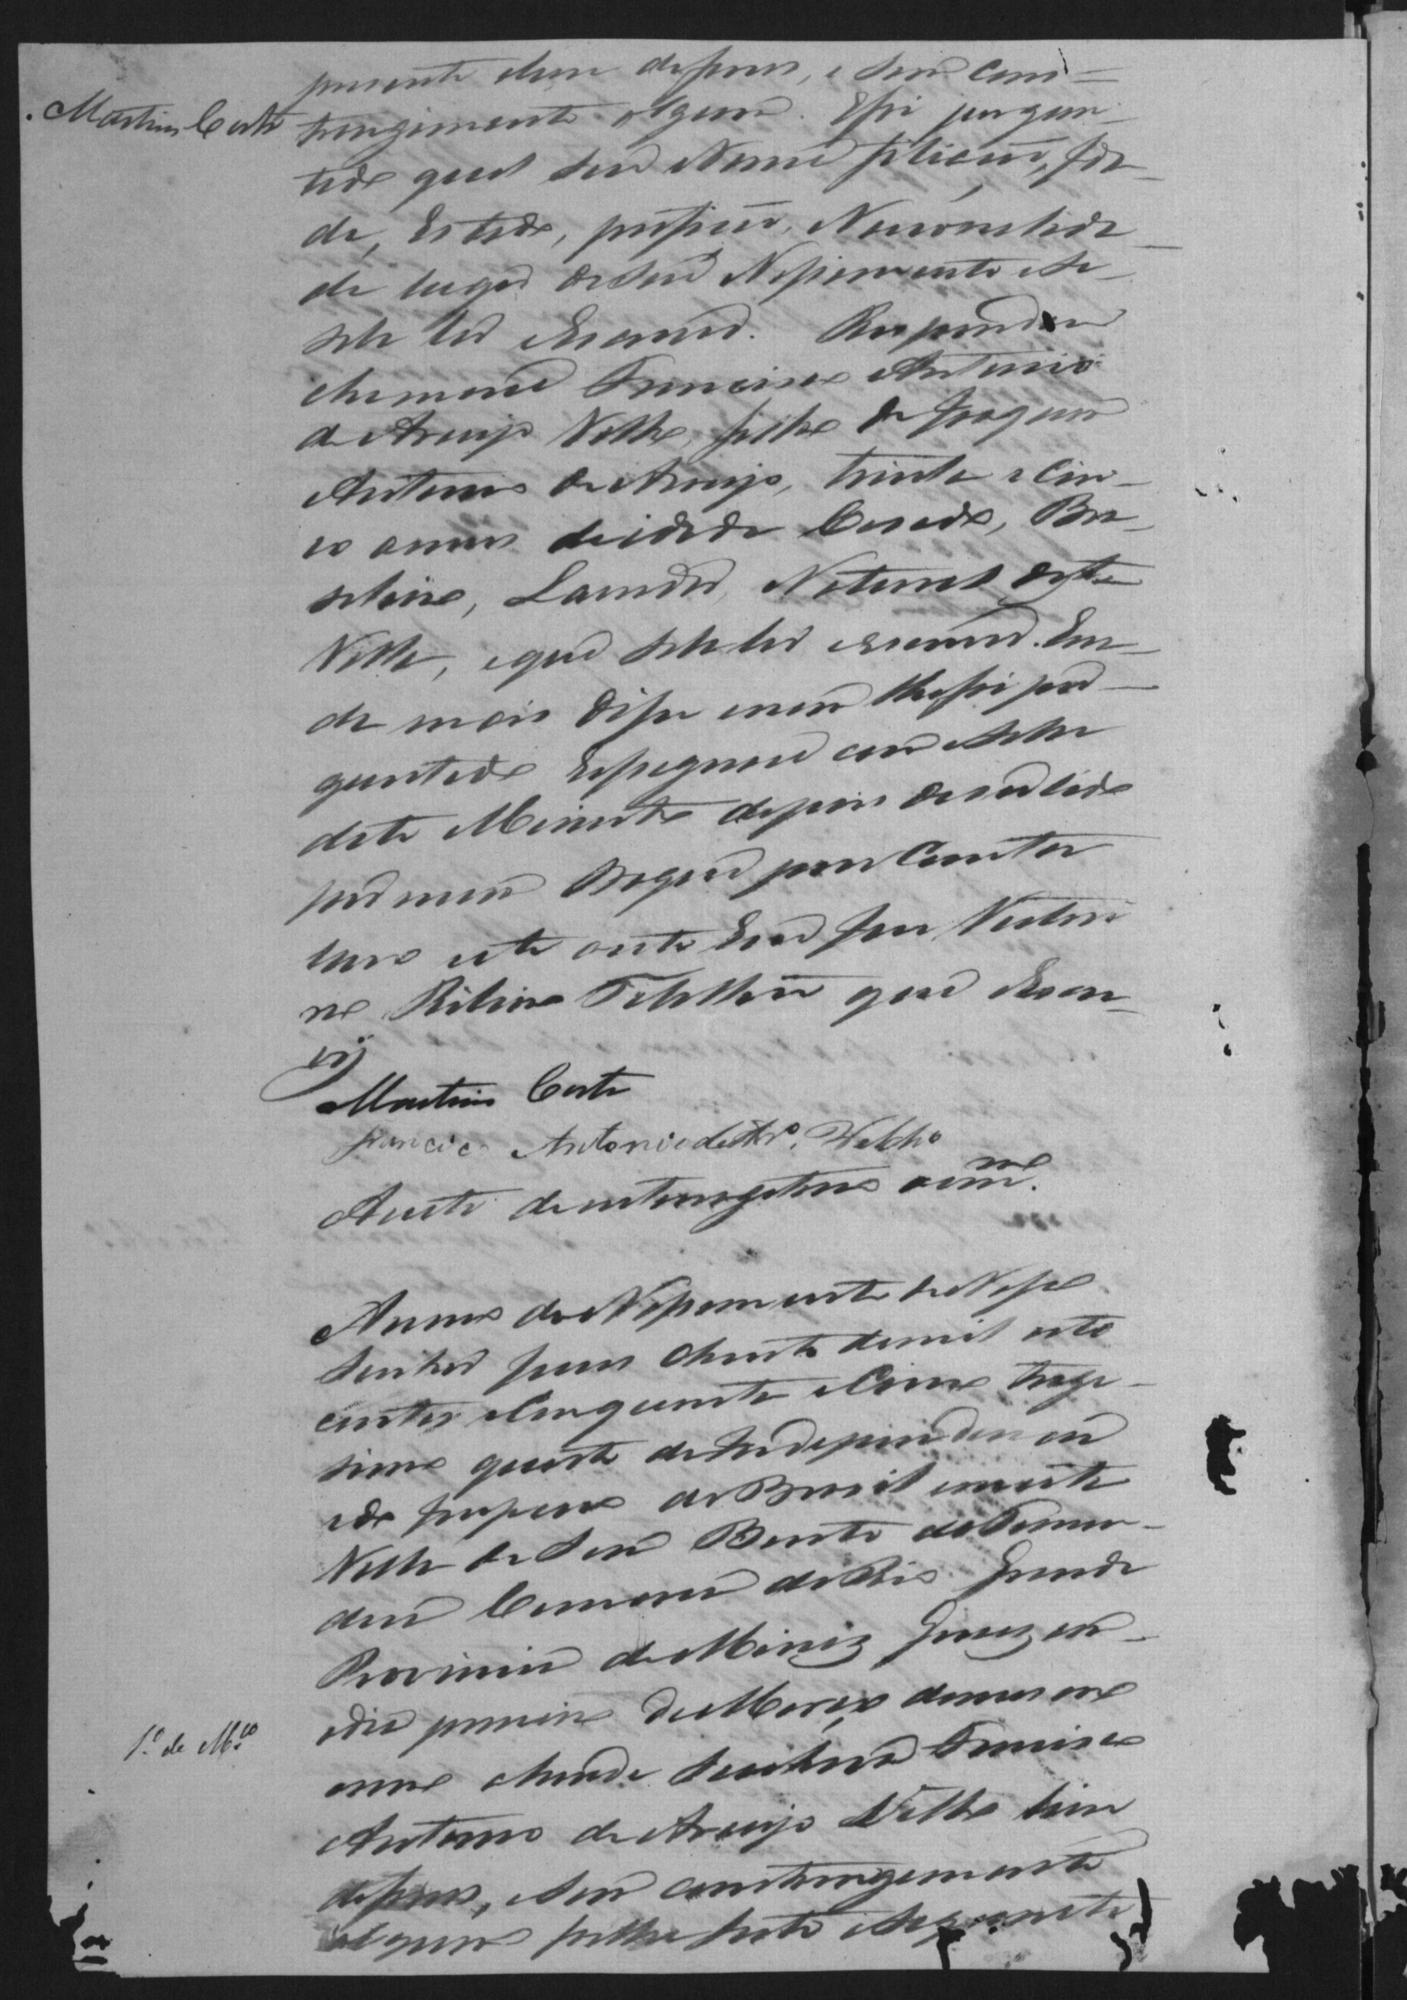 Martins Costa
presente livre de ferros, e sem Cons=
trangimento algum. E foi pergun-
tado qual seu Nome filiação, Ida-
de, Estado, profição, Nacionalida-
de lugar de seu Nascimento e se
sabe ler escrever. Respondeo
chamarce Francisco Antonio
de Araujo Velho, filho de Joaquim
Antonio de Araujo, trinta e cin-
co annos de idade Casado, Bra-
sileiro, Lavrador, Natural desta
Villa, e que sabe ler escrever. E na-
da mais disse nem lhe foi per-
guntado E assignou com o
depois de ser lido
por mim por Conter
este auto Eu José Victori
no Ribeiro Tabelliam que Escre-
vij
Martins Costa
Francico Antonio de Arº. Velho
Auto de interrogatorio ao mmo.
Anno do Nascimento de Nosso
Senhor Jesus Christo de mil oito
centos e Cincoenta e Cinco trege-
simo quarto da Independencia
e do Imperio do Brasil nesta
Villa de Sam Bento do Taman-
duá Comarca do Rio Grande
Provincia de Minas Geraes em
o dia primeiro de Março do mesmo
1.º de M.ço
anno o Francisco
Antonio de Araujo Velho livre
de ferros, e sem constrangimento
algum pello Juiz